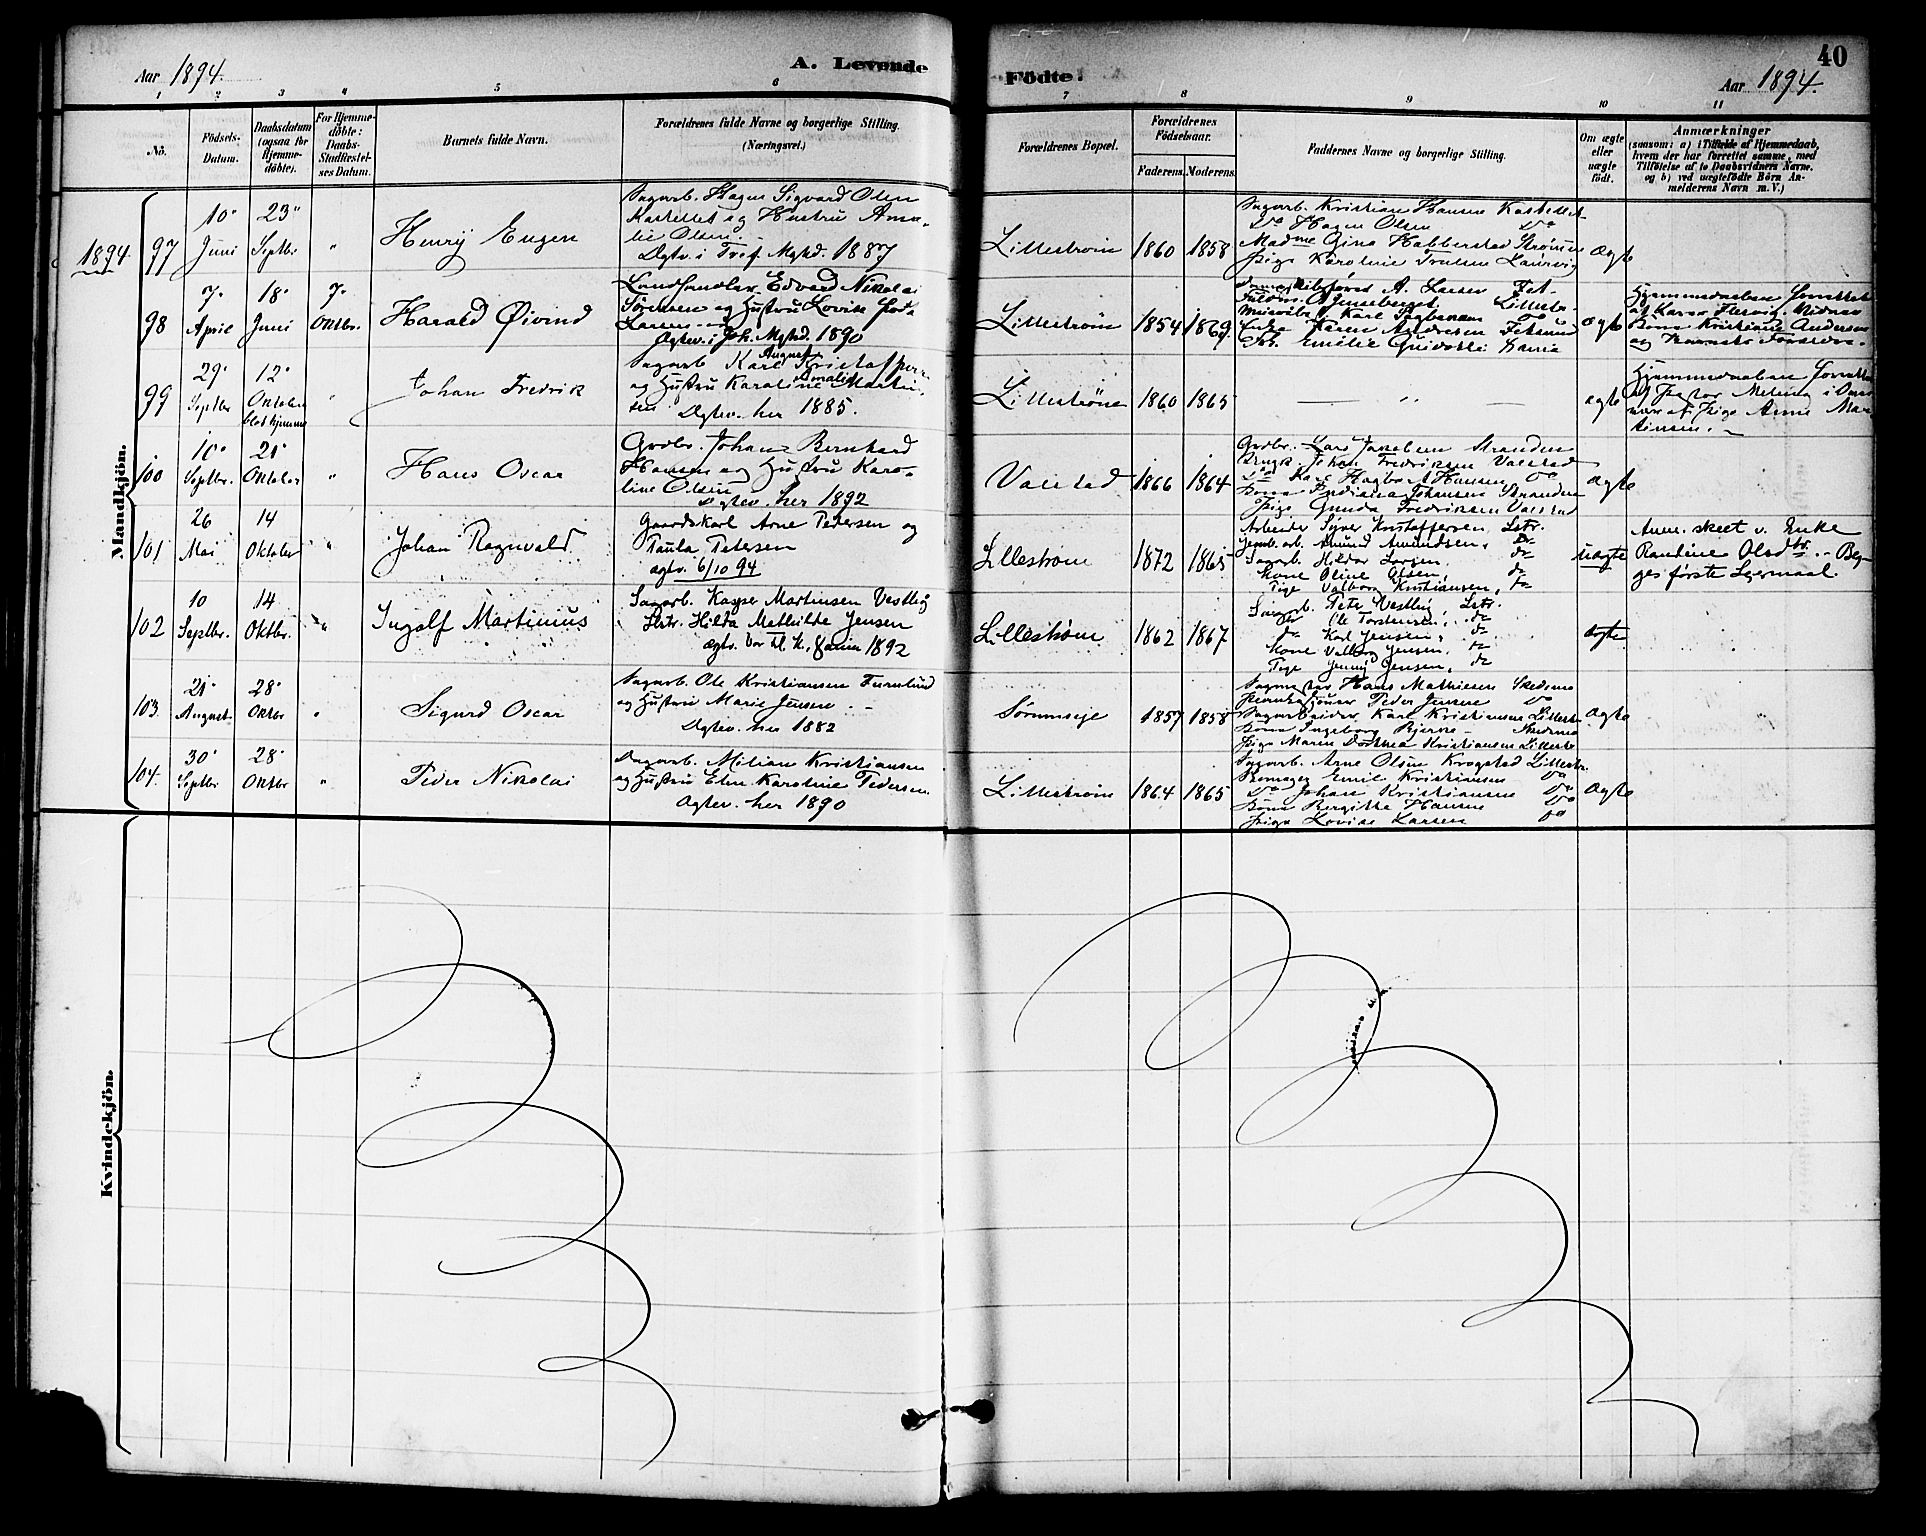 Aar 1894.
A. Levende
Födte.
40
Aar 1894.
1 2 3 4 5 6 7 8 9 10 11
No.
Födsels-
Datum.
Daabsdatum
(ogsaa for
Hjemme-
døbte).
For Hjemme-
døbte:
Daabs-
Stadfæstel-
ses Datum.
Barnets fulde Navn.
Forældrenes fulde Navne og borgerlige Stilling.
(Næringsvei.)
Forældrenes Bopæl.
Forældrenes
Födselsaar.
Faderens. Moderens.
Faddernes Navne og borgerlige Stilling.
Om ægte
eller
uægte
födt.
Anmærkninger
(saasom: a) i Tilfælde af Hjemmedaab,
hvem der har forrettet samme, med
Tilføielse af to Daabsvidners Navne,
og b) ved uægtefödte Börn An-
melderens Navn m. V.)
Mandkjön.
1894
97
10'
Juni
23"
Septbr.
"
Henrÿ Eugen
Sagarb. Hagen Sigvard Olsen
Kastellet og Hustru Ama-
lie Olsen.
Ægtev. i Tref. Mghd. 1887
Lillestrøm
1860
1858
Sagarb. Kristian Hansen Kastellet
Do Hagen Olsen Do
Madme Gina Habberstad Strømmen
Pige Karoline Laurvig
ægte
98
7'
April
18'
Juni
7'
Oktbr.
Harald Øivind
Landhandler Edvard Nikolai
Sørensen og Hustru Lovise
Larsen
Ægtev. i Joh. Mghd. 1890
Lillestrøm
1854
1869
A. Larsen Fet
Lillestr.
Karl Do
Enke Karen Andresen Fetsund
Frk. Emilie
ægte
Hjemmedaaben forrettet
af Vidner
Kona Kristiane Andersen
og
99
29'
Septbr
12'
Oktober
blot hjemme
"
Johan Fredrik
Sagarb Karl August Kristoffersen
og Hustru Karoline Amalie Martin-
sen Ægtev. her 1885.
Lillestrøm
1860
1865
— " —
ægte
Hjemmedaaben forrettet
af
af Pige Anne Mar-
tinsen.
100
10'
Septbr.
21'
Oktober
"
Hans Oscar
Grdbr. Johan Bernhard
Hansen og Hustru Karo-
line Olsen
Ægtev. her 1892
Valstad
1866
1864
Grdbr. Lars Jakobsen Stranden
Johan Fredriksen Valstad
Do Karl Hagbart Hansen Do
Kona Indiana Johansen Stranden
Pige Gunda Fredriksen Valstad
ægte
101
26
Mai
14
Oktober
"
Johan Ragnvald
Gaardskarl Arne Petersen og
Paula Petersen
ægtv. 6/10 94
Lillestrøm
1872
1865
Arbeider Syver Kristoffersen, Lstr.
Jernb.arb. Amund Amundsen, do
Sagarb. Hilda Larsen, do
Kone Oline Olsen, do
Pige Valborg Kristiansen, do
uægte
Anm. skeet v. Enke
Rantine Olsdtr. - Beg-
ges første Leiermaal.
102
10
Septbr.
14
Oktbr.
"
Ingolf Martinius
Sagarb. Kasper Martinsen Vestbÿ
Hstr. Hilda Mathilde Jensen
Ægtv. Vor Fr. K., Xania 1892
Lillestrøm
1862
1867
Sagarb. Petr. Vestby, Lstr.
do Ole Torstensen, do
do Karl Jensen, do
Kone Valborg Jensen, do
Pige Jenny Jensen, do
ægte
103
21'
August
28'
Oktbr
"
Sigurd Oscar
Sagarb. Ole Kristiansen Furulund
og Hustru Marie Jensen
Ægtev. her 1882
Sørumseie
1857
1858
Sagmester Hans Mathiesen Skedsmo
Peder Jensen Do
Sagarbeider Karl Kristiansen Lillestr.
Kona Ingeborg Bjerke Skedsmo
Pige Maren Dorthea Kristiansen Lillestr.
ægte
104.
30'
Septbr
28'
Oktbr
"
Peder Nikolai
Sagarb. Milian Kristiansen
og Hustru Elen Karoline Pedersen
Ægtev. her 1890
Lillestrøm
1864
1865
Sagarb. Arne Olsen Krogstad Lillestr.
Emil Kristiansen Do
Do Johan Kristiansen Do
Kona Bergitte Hansen Do
Pige Lovise Larsen Do
ægte
Kvindekjön.